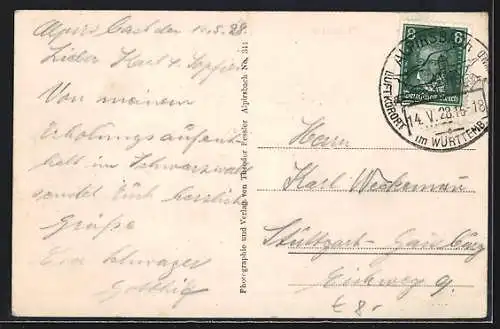 Alpirsbach den 10.5.28.
Lieber Karl u. Sopfie
Von meinem
Erholungsaufent
halt im Schwarzwald
sendet Euch herzliche
Grüße
Schwager
Gottlieb
Photographie und Verlag von Theodor Fessler Alpirsbach No. 341
8 8
Deutsches Reich
ALPIRSBACH
LUFTKURORT
14.V.28.16-18
im WÜRTTEMB.
Herrn
Karl
Stuttgart-Gaisburg
Eichweg 9.